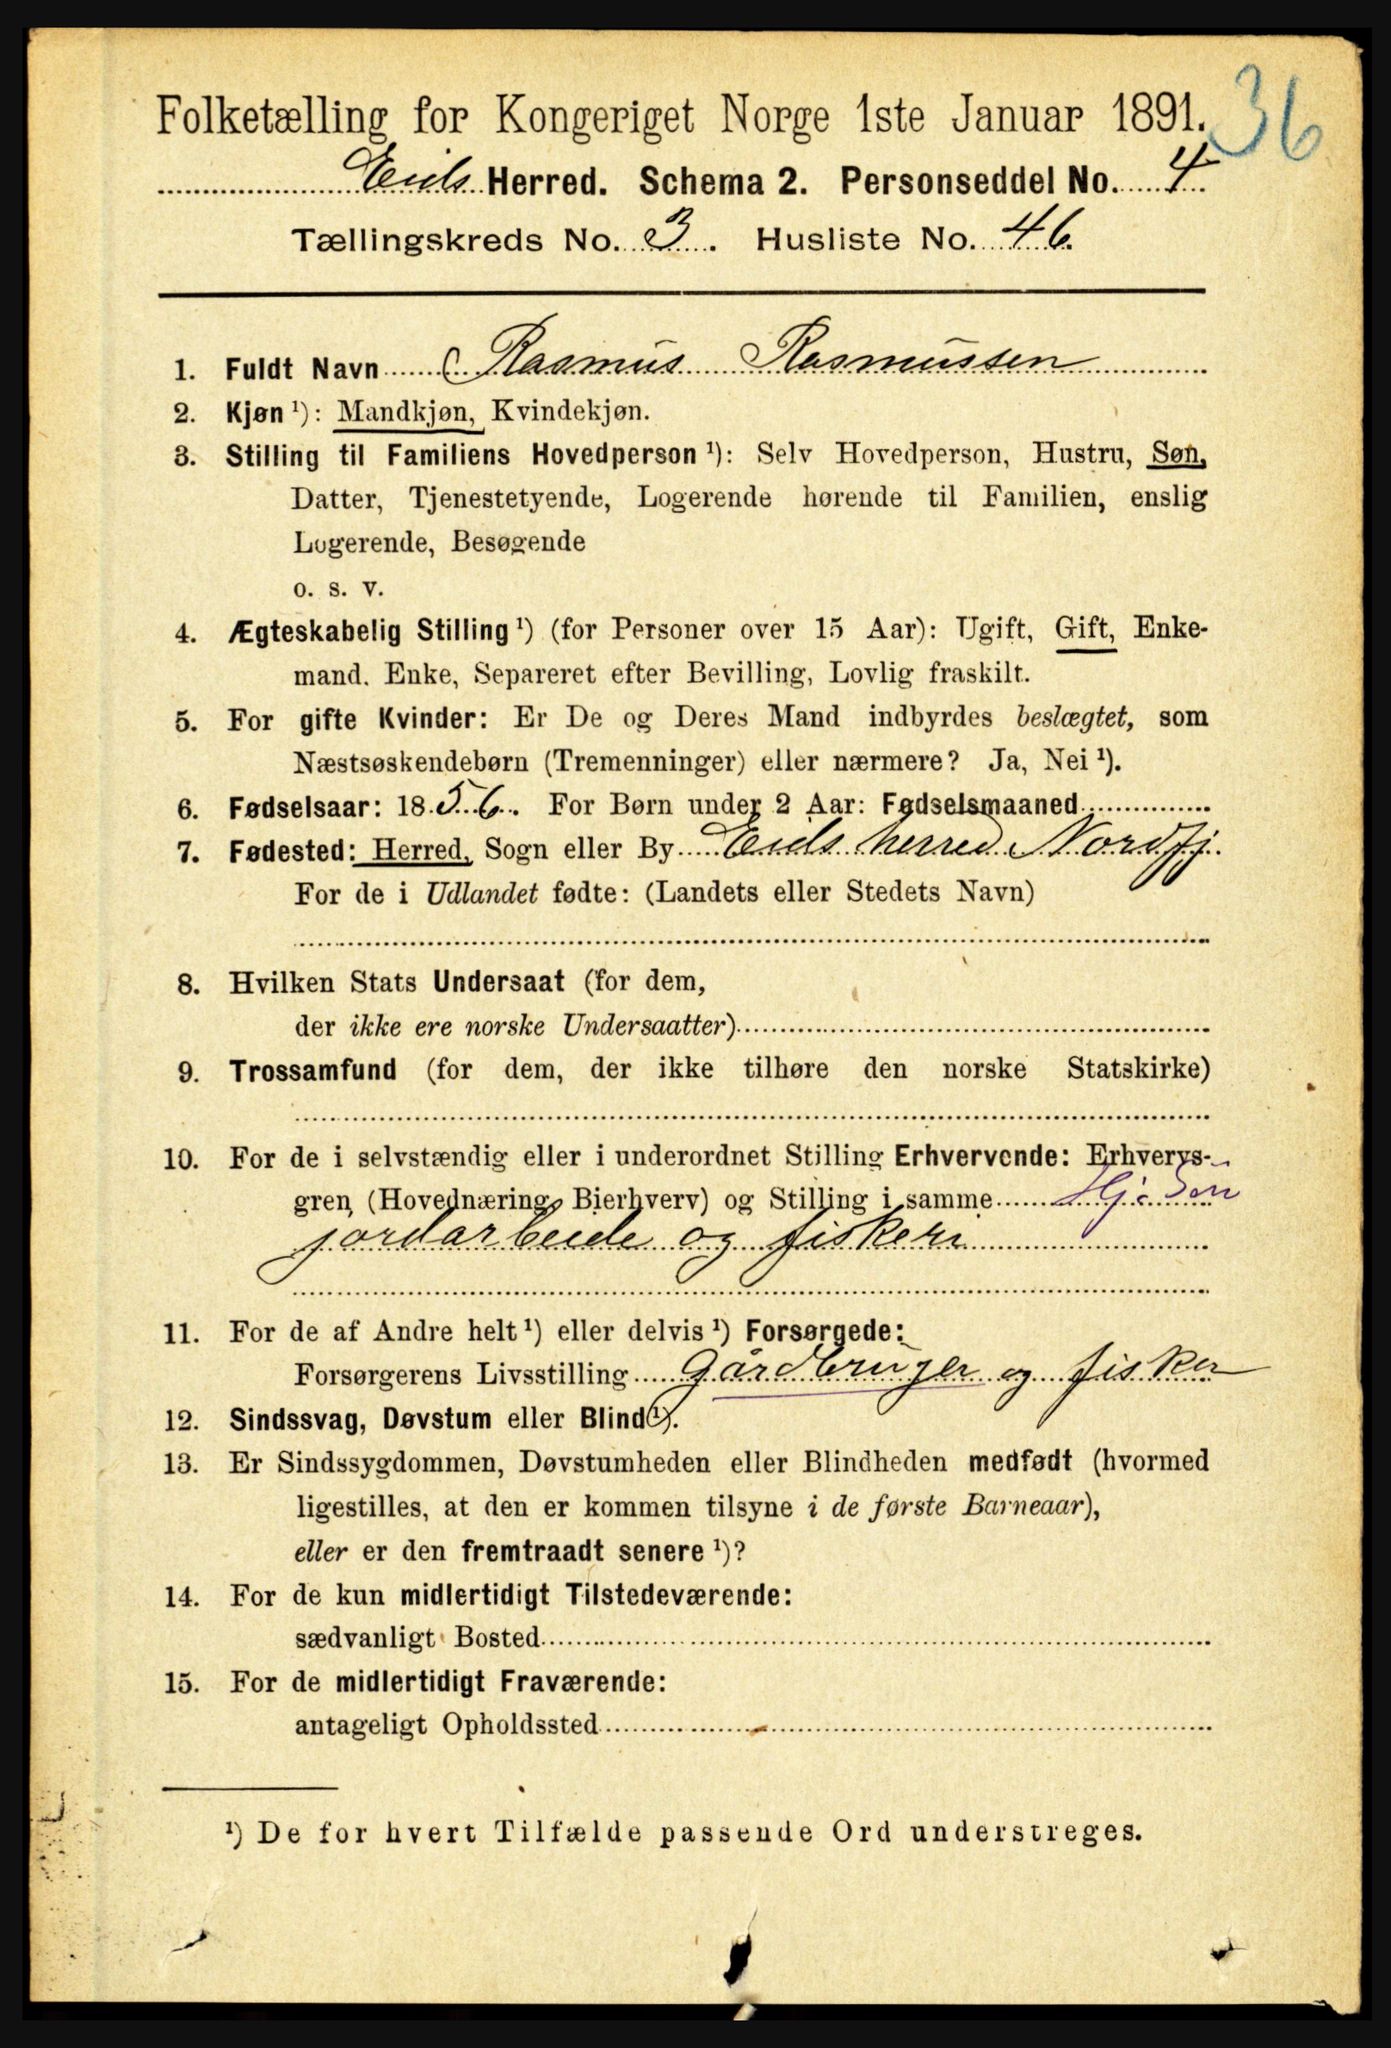 36
Folketælling for Kongeriget Norge 1ste Januar 1891.
Eids Herred. Schema 2. Personseddel No. 4.
Tællingskreds No. 3. Husliste No. 46.
1. Fuldt Navn Rasmus Rasmussen
2. Kjøn ¹): Mandkjøn, Kvindekjøn.
3. Stilling til Familiens Hovedperson ¹): Selv Hovedperson, Hustru, Søn,
Datter, Tjenestetyende, Logerende hørende til Familien, enslig
Logerende, Besøgende
o. s. v.
4. Ægteskabelig Stilling ¹) (for Personer over 15 Aar): Ugift, Gift, Enke-
mand. Enke, Separeret efter Bevilling, Lovlig fraskilt.
5. For gifte Kvinder: Er De og Deres Mand indbyrdes beslægtet, som
Næstsøskendebørn (Tremenninger) eller nærmere? Ja, Nei ¹).
6. Fødselsaar: 1856. For Børn under 2 Aar: Fødselsmaaned
7. Fødested: Herred, Sogn eller By Eids herred Nordfj.
For de i Udlandet fødte: (Landets eller Stedets Navn)
8. Hvilken Stats Undersaat (for dem,
der ikke ere norske Undersaatter)
9. Trossamfund (for dem, der ikke tilhøre den norske Statskirke)
10. For de i selvstændig eller i underordnet Stilling Erhvervende: Erhvervs-
gren (Hovednæring, Bierhverv) og Stilling i samme Hj. Søn
jordarbeide og fiskeri
11. For de af Andre helt ¹) eller delvis ¹) Forsørgede:
Forsørgerens Livsstilling Gårdbruger og fisker
12. Sindssvag, Døvstum eller Blind ¹).
13. Er Sindssygdommen, Døvstumheden eller Blindheden medfødt (hvormed
ligestilles, at den er kommen tilsyne i de første Barneaar),
eller er den fremtraadt senere ¹)?
14. For de kun midlertidigt Tilstedeværende:
sædvanligt Bosted
15. For de midlertidigt Fraværende:
antageligt Opholdssted
¹) De for hvert Tilfælde passende Ord understreges.